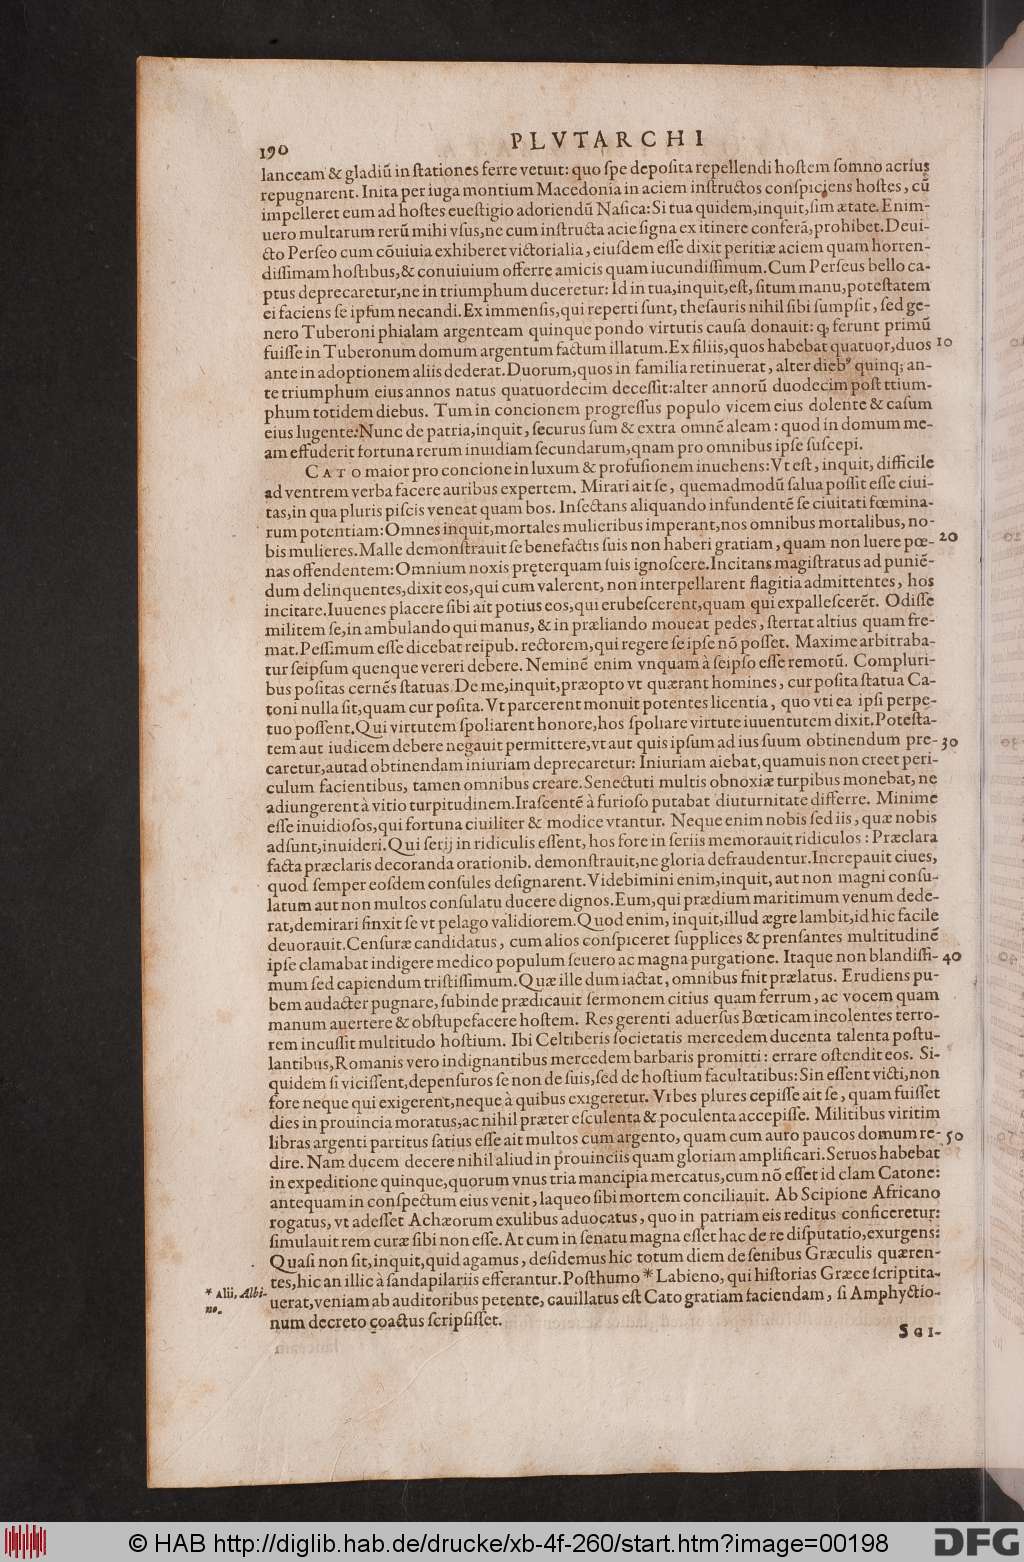 190 PLVTARCHI
lanceam & gladiũ in ſtationes ferre vetuit: quo ſpe depoſita repellendi hoſtem ſomno acrius
repugnarent. Inita per iuga montium Macedonia in aciem inſtructos conſpiciens hoſtes, cũ
impelleret eum ad hoſtes eueſtigio adoriendũ Naſica: Si tua quidem, inquit, ſim ætate. Enim-
uero multarum rerũ mihi vſus, ne cum inſtructa acie ſigna ex itinere conferã, prohibet. Deui-
cto Perſeo cum cõuiuia exhiberet victorialia, eiuſdem eſſe dixit peritiæ aciem quam horren-
diſſimam hoſtibus, & conuiuium offerre amicis quam iucundiſſimum. Cum Perſeus bello ca-
ptus deprecaretur, ne in triumphum duceretur: Id in tua, inquit, eſt, ſitum manu, poteſtatem
ei faciens ſe ipſum necandi. Ex immenſis, qui reperti ſunt, theſauris nihil ſibi ſumpſit, ſed ge-
nero Tuberoni phialam argenteam quinque pondo virtutis cauſa donauit: q̃ ferunt primũ
fuiſſe in Tuberonum domum argentum factum illatum. Ex filiis, quos habebat quatuor, duos 10
ante in adoptionem aliis dederat. Duorum, quos in familia retinuerat, alter diebꝰ quinq; an-
te triumphum eius annos natus quatuordecim deceſſit: alter annorũ duodecim poſt ttium-
phum totidem diebus. Tum in concionem progreſſus populo vicem eius dolente & caſum
eius lugente: Nunc de patria, inquit, ſecurus ſum & extra omnẽ aleam: quod in domum me-
am effuderit fortuna rerum inuidiam ſecundarum, qnam pro omnibus ipſe ſuſcepi.
CATO maior pro concione in luxum & profuſionem inuehens: Vt eſt, inquit, difficile
ad ventrem verba facere auribus expertem. Mirari ait ſe, quemadmodũ ſalua poſſit eſſe ciui-
tas, in qua pluris piſcis veneat quam bos. Inſectans aliquando infundentẽ ſe ciuitati fœmina-
rum potentiam: Omnes inquit, mortales mulieribus imperant, nos omnibus mortalibus, no-
bis mulieres. Malle demonſtrauit ſe benefactis ſuis non haberi gratiam, quam non luere pœ- 20
nas offendentem: Omnium noxis pręterquam ſuis ignoſcere. Incitans magiſtratus ad puniẽ-
dum delinquentes, dixit eos, qui cum valerent, non interpellarent flagitia admittentes, hos
incitare. Iuuenes placere ſibi ait potius eos, qui erubeſcerent, quam qui expalleſcerẽt. Odiſſe
militem ſe, in ambulando qui manus, & in præliando moueat pedes, ſtertat altius quam fre-
mat. Peſſimum eſſe dicebat reipub. rectorem, qui regere ſe ipſe nõ poſſet. Maxime arbitraba-
tur ſeipſum quenque vereri debere. Neminẽ enim vnquam à ſeipſo eſſe remotũ. Compluri-
bus poſitas cernẽs ſtatuas De me, inquit, præopto vt quærant homines, cur poſita ſtatua Ca-
toni nulla ſit, quam cur poſita. Vt parcerent monuit potentes licentia, quo vti ea ipſi perpe-
tuo poſſent. Qui virtutem ſpoliarent honore, hos ſpoliare virtute iuuentutem dixit. Poteſta-
tem aut iudicem debere negauit permittere, vt aut quis ipſum ad ius ſuum obtinendum pre- 30
caretur, aut ad obtinendam iniuriam deprecaretur: Iniuriam aiebat, quamuis non creet peri-
culum facientibus, tamen omnibus creare. Senectuti multis obnoxiæ turpibus monebat, ne
adiungerent à vitio turpitudinem. Iraſcentẽ à furioſo putabat diuturnitate differre. Minime
eſſe inuidioſos, qui fortuna ciuiliter & modice vtantur. Neque enim nobis ſed iis, quæ nobis
adſunt, inuideri. Qui ſerij in ridiculis eſſent, hos fore in ſeriis memorauit ridiculos: Præclara
facta præclaris decoranda orationib. demonſtrauit, ne gloria defraudentur. Increpauit ciues,
quod ſemper eoſdem conſules deſignarent. Videbimini enim, inquit, aut non magni conſu-
latum aut non multos conſulatu ducere dignos. Eum, qui prædium maritimum venum dede-
rat, demirari finxit ſe vt pelago validiorem. Quod enim, inquit, illud ægre lambit, id hic facile
deuorauit. Cenſuræ candidatus, cum alios conſpiceret ſupplices & prenſantes multitudinẽ
ipſe clamabat indigere medico populum ſeuero ac magna purgatione. Itaque non blandiſſi- 40
mum ſed capiendum triſtiſſimum. Quæ ille dum iactat, omnibus fnit prælatus. Erudiens pu-
bem audacter pugnare, ſubinde prædicauit ſermonem citius quam ferrum, ac vocem quam
manum auertere & obſtupefacere hoſtem. Res gerenti aduerſus Bœticam incolentes terro-
rem incuſſit multitudo hoſtium. Ibi Celtiberis ſocietatis mercedem ducenta talenta poſtu-
lantibus, Romanis vero indignantibus mercedem barbaris promitti: errare oſtendit eos. Si-
quidem ſi viciſſent, depenſuros ſe non de ſuis, ſed de hoſtium facultatibus: Sin eſſent victi, non
fore neque qui exigerent, neque à quibus exigeretur. Vrbes plures cepiſſe ait ſe, quam fuiſſet
dies in prouincia moratus, ac nihil præter eſculenta & poculenta accepiſſe. Militibus viritim
libras argenti partitus ſatius eſſe ait multos cum argento, quam cum auro paucos domum re- 50
dire. Nam ducem decere nihil aliud in prouinciis quam gloriam amplificari. Seruos habebat
in expeditione quinque, quorum vnus tria mancipia mercatus, cum nõ eſſet id clam Catone:
antequam in conſpectum eius venit, laqueo ſibi mortem conciliauit. Ab Scipione Africano
rogatus, vt adeſſet Achæorum exulibus aduocatus, quo in patriam eis reditus conficeretur:
ſimulauit rem curæ ſibi non eſſe. At cum in ſenatu magna eſſet hac de re diſputatio, exurgens:
Quaſi non ſit, inquit, quid agamus, deſidemus hic totum diem de ſenibus Græculis quæren-
tes, hic an illic à ſandapilariis efferantur. Poſthumo * Labieno, qui hiſtorias Græce ſcriptita-
* Alii, Albi-
no.
uerat, veniam ab auditoribus petente, cauillatus eſt Cato gratiam faciendam, ſi Amphyctio-
num decreto coactus ſcripſiſſet.
SCI-
© HAB http://diglib.hab.de/drucke/xb-4f-260/start.htm?image=00198
DFG